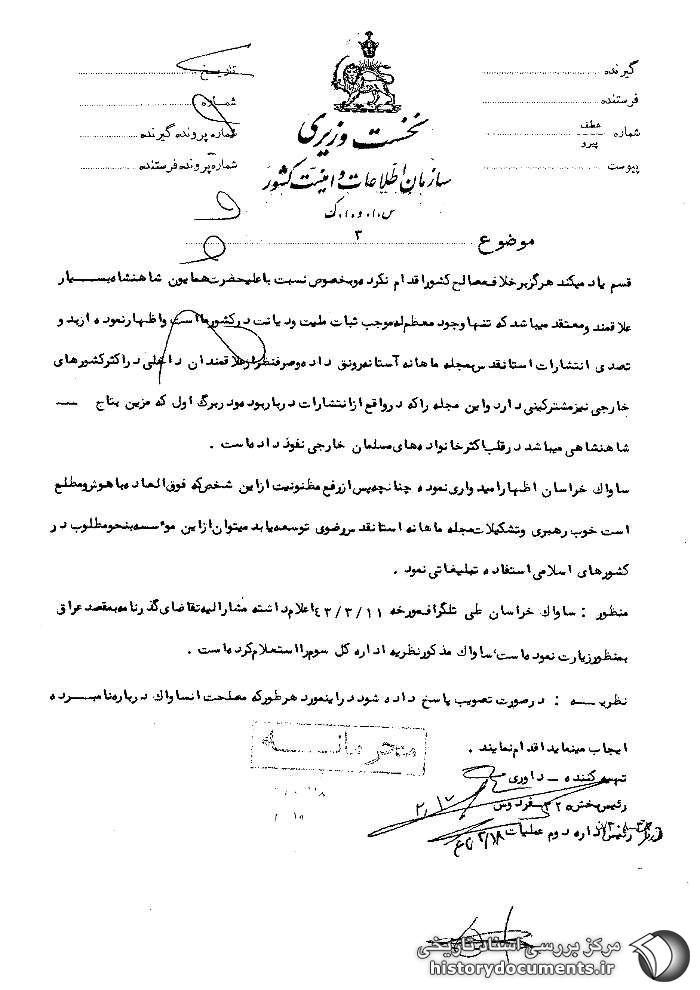 گیرنده
فرستنده
شماره عطف پیرو
پیوست
تاریخ
شماره
شماره پرونده گیرنده
شماره پرونده فرستنده
نخست وزیری
سازمان اطلاعات و امنیت کشور
س.ا.و.ا.ک
موضوع ۳
قسم یاد میکند هرگز برخلاف مصالح کشور اقدام نکرده و بخصوص نسبت باعلیحضرت همایون شاهنشاه بسیار
علاقمند و معتقد میباشد که تنها وجود معظم له موجب ثبات ملیت و دیانت در کشور ما است و اظهار نموده از بدو
تصدی انتشارات استانقدس بمجله ماهانه آستانه رونق داده و صرفنظر از علاقمندان داخلی در اکثر کشورهای
خارجی نیز مشترکینی دارد و این مجله را که در واقع از انتشارات دربار بوده و در برگ اول که مزین بتاج
شاهنشاهی میباشد در قلب اکثر خانواده های مسلمان خارجی نفوذ داده است .
ساواک خراسان اظهار امیدواری نموده چنانچه پس از رفع مظنونیت از این شخص که فوق العاده با هوش و مطلع
است خوب رهبری و تشکیلات مجله ماهانه استانقدس رضوی توسعه یابد میتوان از این موسسه بنحو مطلوب در
کشورهای اسلامی استفاده تبلیغاتی نمود .
منظور : ساواک خراسان طی تلگراف مورخه ۴۲/۳/۱۱ اعلام داشته مشارالیه تقاضای گذرنامه بمقصد عراق
بمنظور زیارت نموده است، ساواک مذکور نظریه اداره کل سوم را استعلام کرده است .
نظریه : در صورت تصویب پاسخ داده شود در اینمورد هر طور که مصلحت انساواک درباره نامبرده
ایجاب مینماید اقدام نمایند .
محرمانه
تهیه کننده - داوری
رئیس بخش ۳۲۰ فردوس
رئیس اداره دوم عملیات
مرکز بررسی اسناد تاریخی
historydocuments.ir